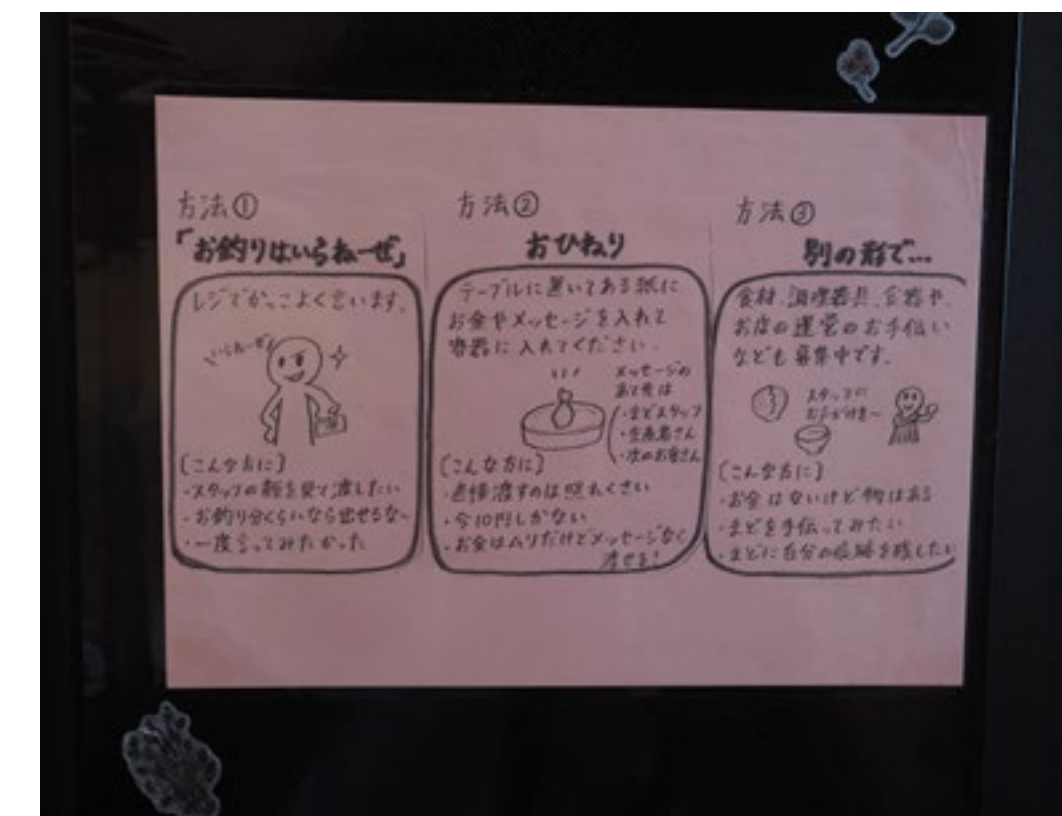 方法①
「お釣りはいらねーぜ」
レジでかっこよく言います。
いらねーぜ!
[こんな方に]
・スタッフの顔を見て渡したい
・お釣り分くらいなら出せるな~
・一度言ってみたかった
方法②
おひねり
テーブルに置いてある紙に
お金やメッセージを入れて
容器に入れてください。
メッセージの
あて先は
・まどスタッフ
・生産者さん
・次のお客さん
[こんな方に]
・直接渡すのは照れくさい
・今10円しかない
・お金はムリだけどメッセージなら
渡せる!
方法③
別の形で…
食材、調理器具、食器や、
お店の運営のお手伝い
なども募集中です。
スタッフに
お声がけを~
[こんな方に]
・お金はないけど物はある
・まどを手伝ってみたい
・まどに自分の痕跡を残したい